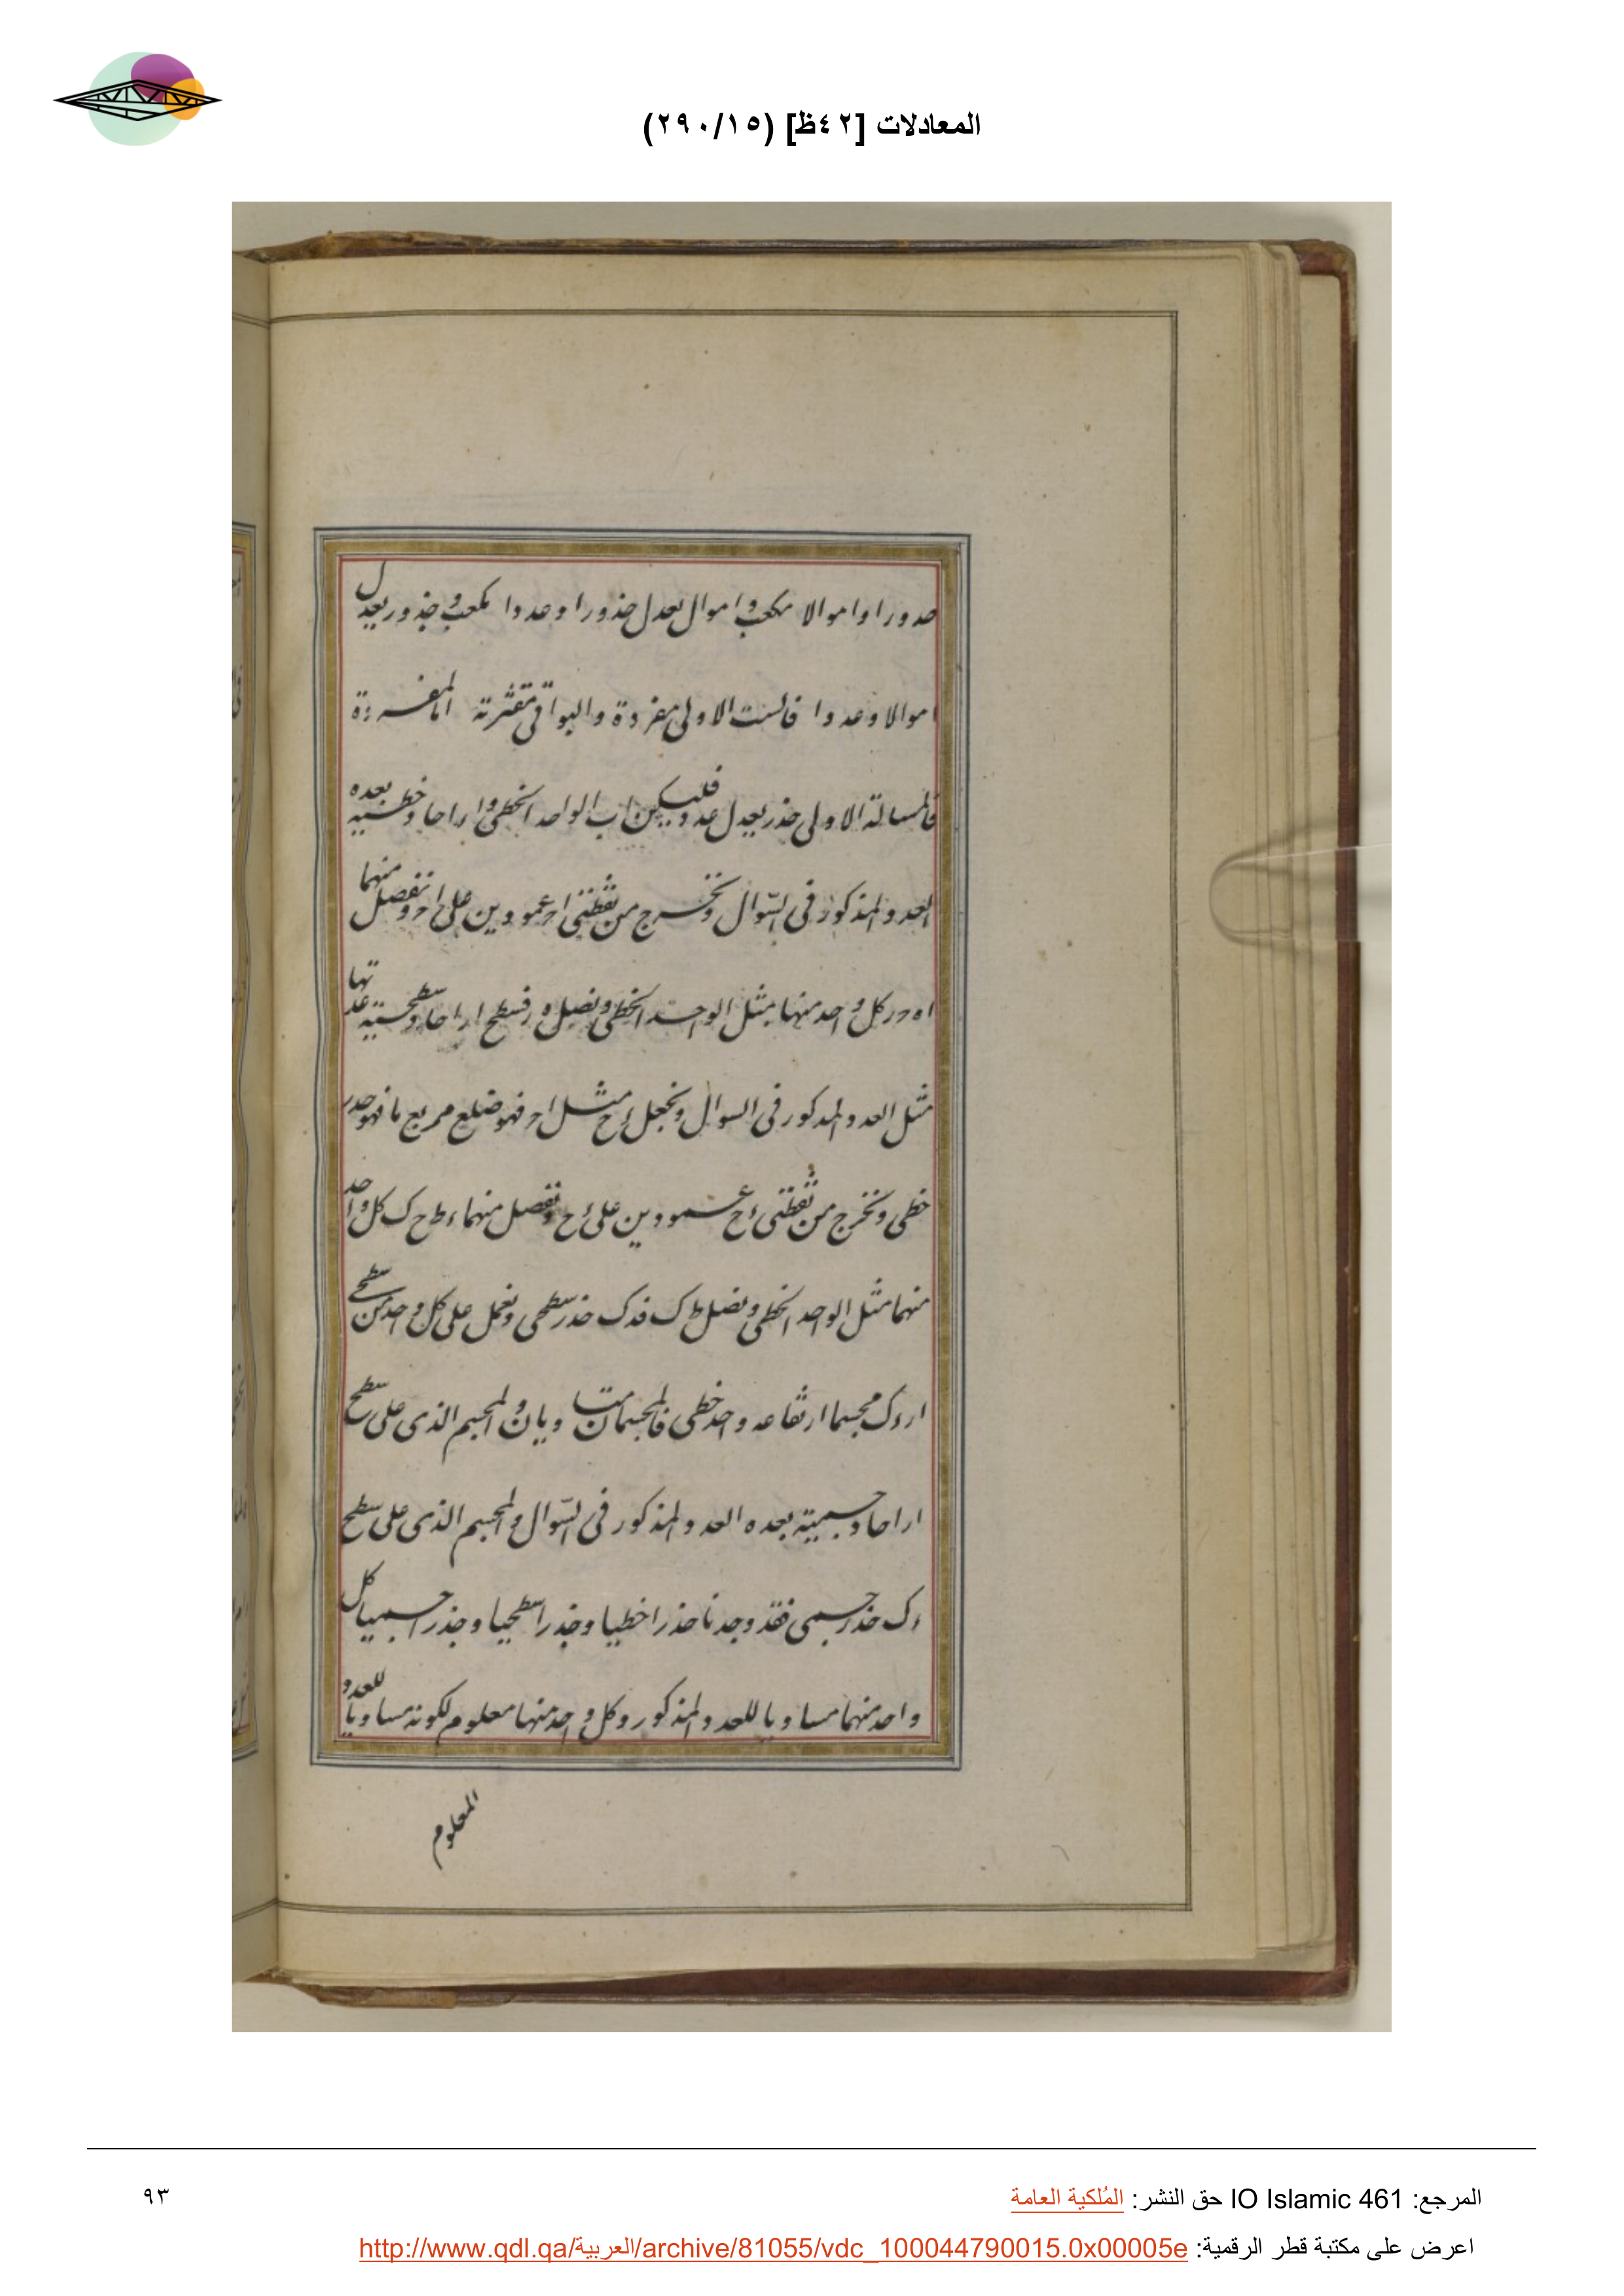 المعادلات [٤٢ظ] (٢٩٠/١٥)
جدورا واموالا مكعب واموال يعدل جذورا وعددا مكعب وجذور يعدل
اموالا وعددا فالست الاولى مفردة والبواقى مقترنة اما المفردة
فالمسالة الاولى جذر يعدل عددا فليكن اب الواحد الخطى وار احادا خطية بعده
العدد المذكور فى السّوال ونخرج من نقطتى ا عمودين على ونفصل منهما
كل واحد منها مثل الواحد الخطى ونصل فسطح ار احاد سطحية عدتها
مثل العدد المدكور فى السوال ونجعل مثل فهو ضلع مربع ما فهو جدر
خطى ونخرج من نقطتى ءح عمودين على ءح ونفصل منهما ءط ح ك كل واحد
منهما مثل الواحد الخطى ونصل ط ك فدك جذر سطحى ونعمل على كل واحد من سطحى
ار دك مجسما ارتفاعه واحد خطى فالمجسمان متساويان والمجسم الذى على سطح
ار احاد جسمية بعده العدد المذكور فى السّوال والمجسم الذى على سطح
دك جذر جسمى فقد وجدنا جذرا خطيا وجذرا سطحيا وجذرا جسميا كل
واحد منهما مساويا للعدد المذكور وكل واحد منها معلوم لكونه مساويا للعدد
المعلوم
المرجع: IO Islamic 461 حق النشر: المُلكية العامة
٩٣
اعرض على مكتبة قطر الرقمية: http://www.qdl.qa/العربية/archive/81055/vdc_100044790015.0x00005e